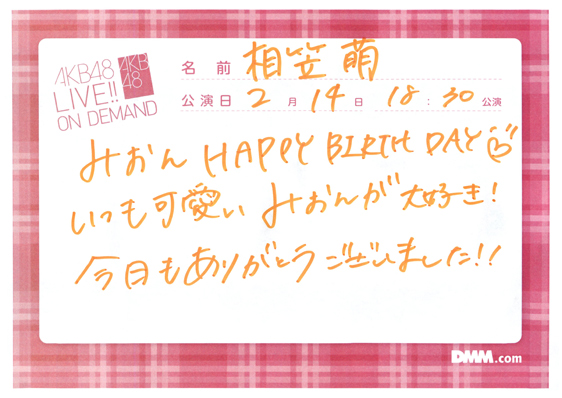 AKB48
LIVE!!
ON DEMAND
AKB
48
名 前 相笠 萌
公演日 2 月 14 日 18 : 30 公演
みおん HAPPY BIRTH DAY
いつも可愛い みおんが 大好き!
今日もありがとうございました!!
DMM.com